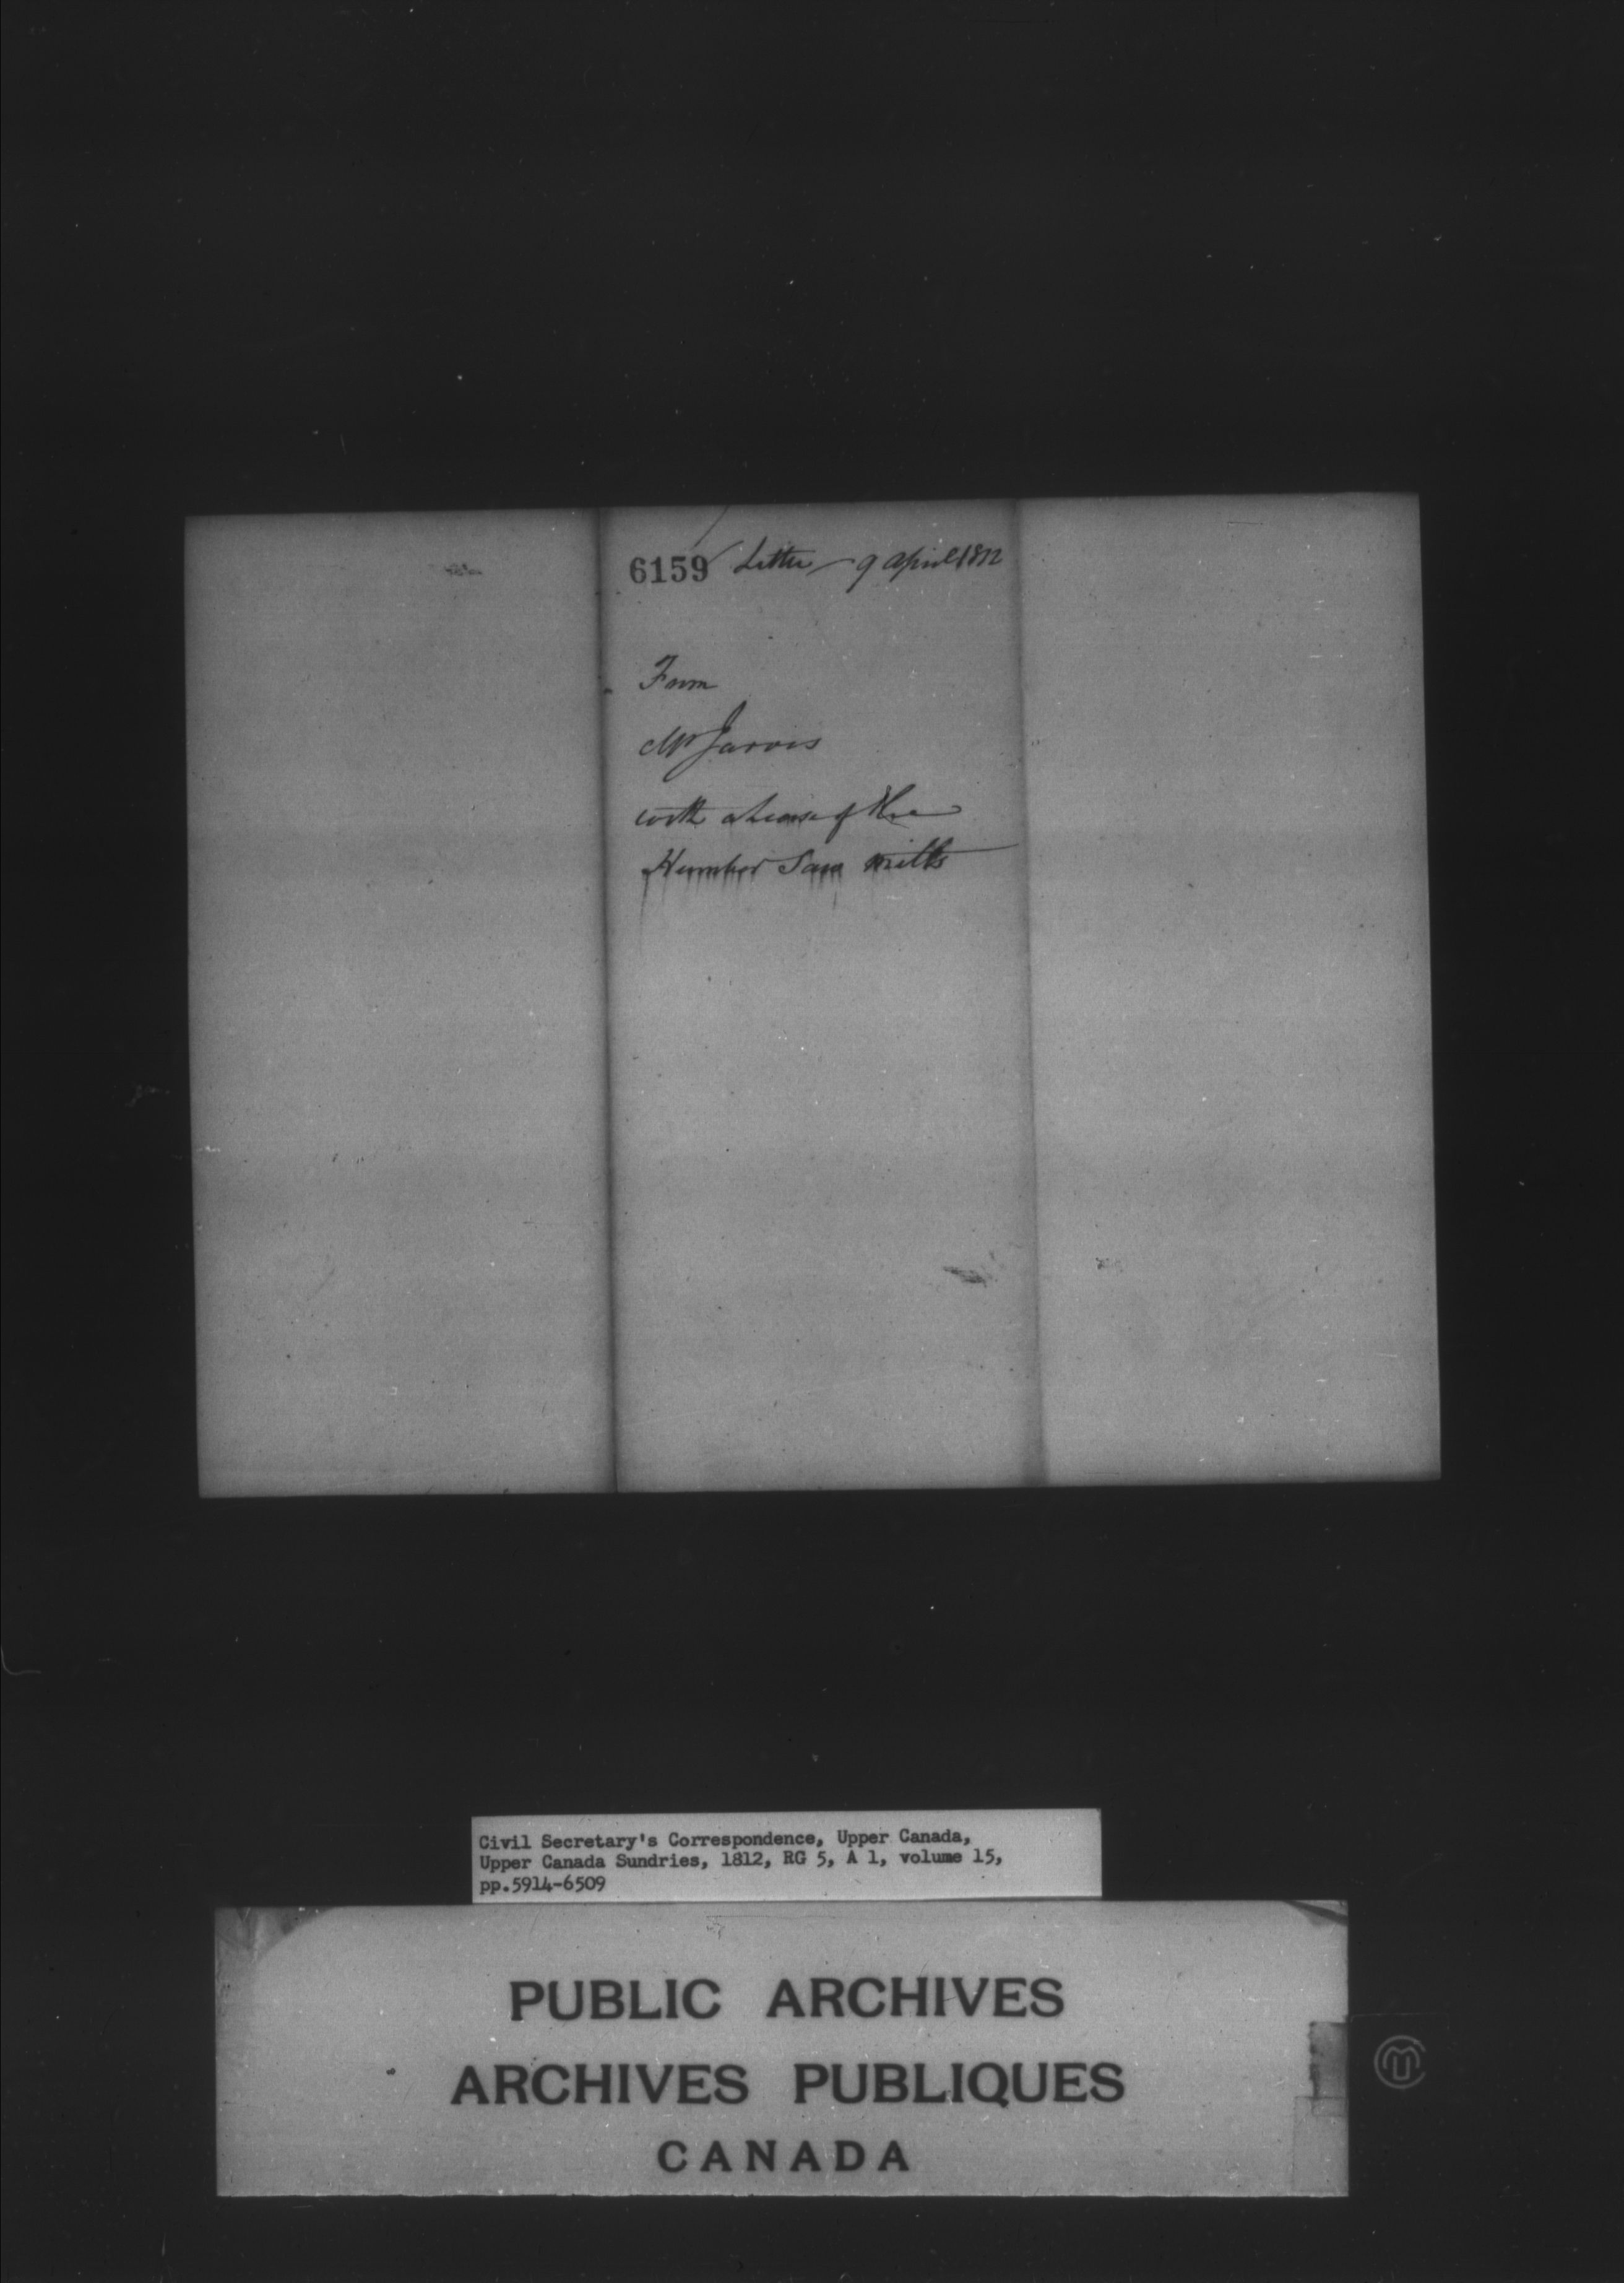 6159 Letter – 9 April 1812
From
Mr Jarvis
with a Lease of the
Humber Saw Mills
Civil Secretary's Correspondence, Upper Canada,
Upper Canada Sundries, 1812, RG 5, A 1, volume 15,
pp.5914-6509
PUBLIC ARCHIVES
ARCHIVES PUBLIQUES
CANADA